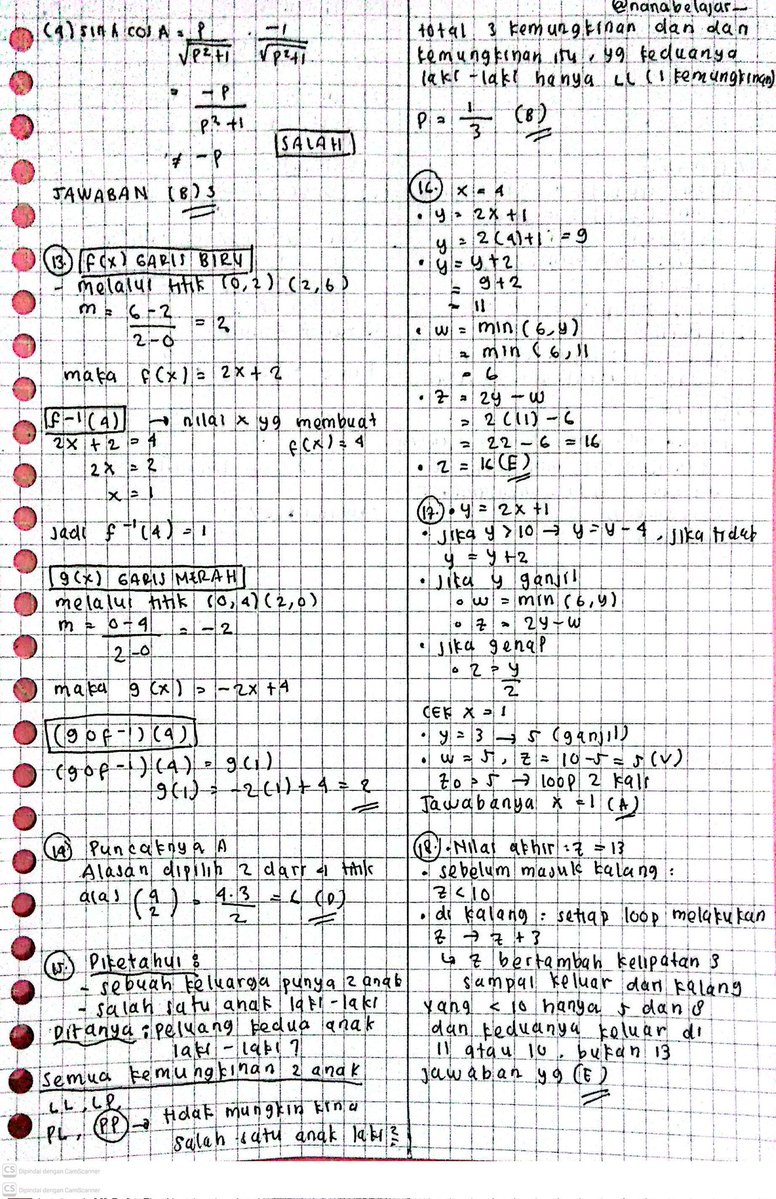 @nanabelajar_
(4) sin A cos A = P/√P²+1 . -1/√P²+1
= -P/P²+1
≠ -P
SALAH
JAWABAN (B) 3
13. f(x) GARIS BIRU
- melalui titik (0,2) (2,6)
m = 6-2/2-0 = 2
maka f(x) = 2x+2
f-1(4) → nilai x yg membuat
f(x) = 4
2x + 2 = 4
2x = 2
x = 1
Jadi f-1(4) = 1
g(x) GARIS MERAH
melalui titik (0,4) (2,0)
m = 0-4/2-0 = -2
maka g(x) = -2x+4
(gof-1)(4)
(gof-1)(4) = g(1)
g(1) = -2(1)+4 = 2
14. Puncaknya A
Alasan dipilih 2 dari 4 titik
alas (4 2) = 4.3/2 = 6 (D)
15. Diketahui :
- sebuah keluarga punya 2 anak
- salah satu anak laki-laki
Ditanya : peluang kedua anak
laki-laki ?
Semua kemungkinan 2 anak
LL, LP,
PL, PP → tidak mungkin krna
salah satu anak laki2
total 3 kemungkinan dan dan
kemungkinan itu, yg keduanya
laki-laki hanya LL (1 kemungkinan)
P = 1/3 (B)
16. x = 4
• y = 2x+1
y = 2(4)+1 = 9
• y = y+2
= 9+2
= 11
• w = min(6,y)
= min(6,11
= 6
• z = 2y - w
= 2(11) - 6
= 22 - 6 = 16
• z = 16 (E)
17. • y = 2x+1
• jika y > 10 → y = y-4, jika tidak
y = y+2
• jika y ganjil
• w = min(6,y)
• z = 2y-w
• jika genap
• z = y/2
CEK x = 1
• y = 3 → 5 (ganjil)
• w = 5, z = 10-5 = 5 (V)
z0 = 5 → loop 2 kali
Jawabanya x = 1 (A)
18. • Nilai akhir : z = 13
• sebelum masuk kalang :
z < 10
• di kalang : setiap loop melakukan
z → z + 3
↳ z bertambah kelipatan 3
sampai keluar dari kalang
yang < 10 hanya 5 dan 8
dan keduanya keluar di
11 atau 10, bukan 13
Jawaban yg (E)
CS Dipindai dengan CamScanner
CS Dipindai dengan CamScanner